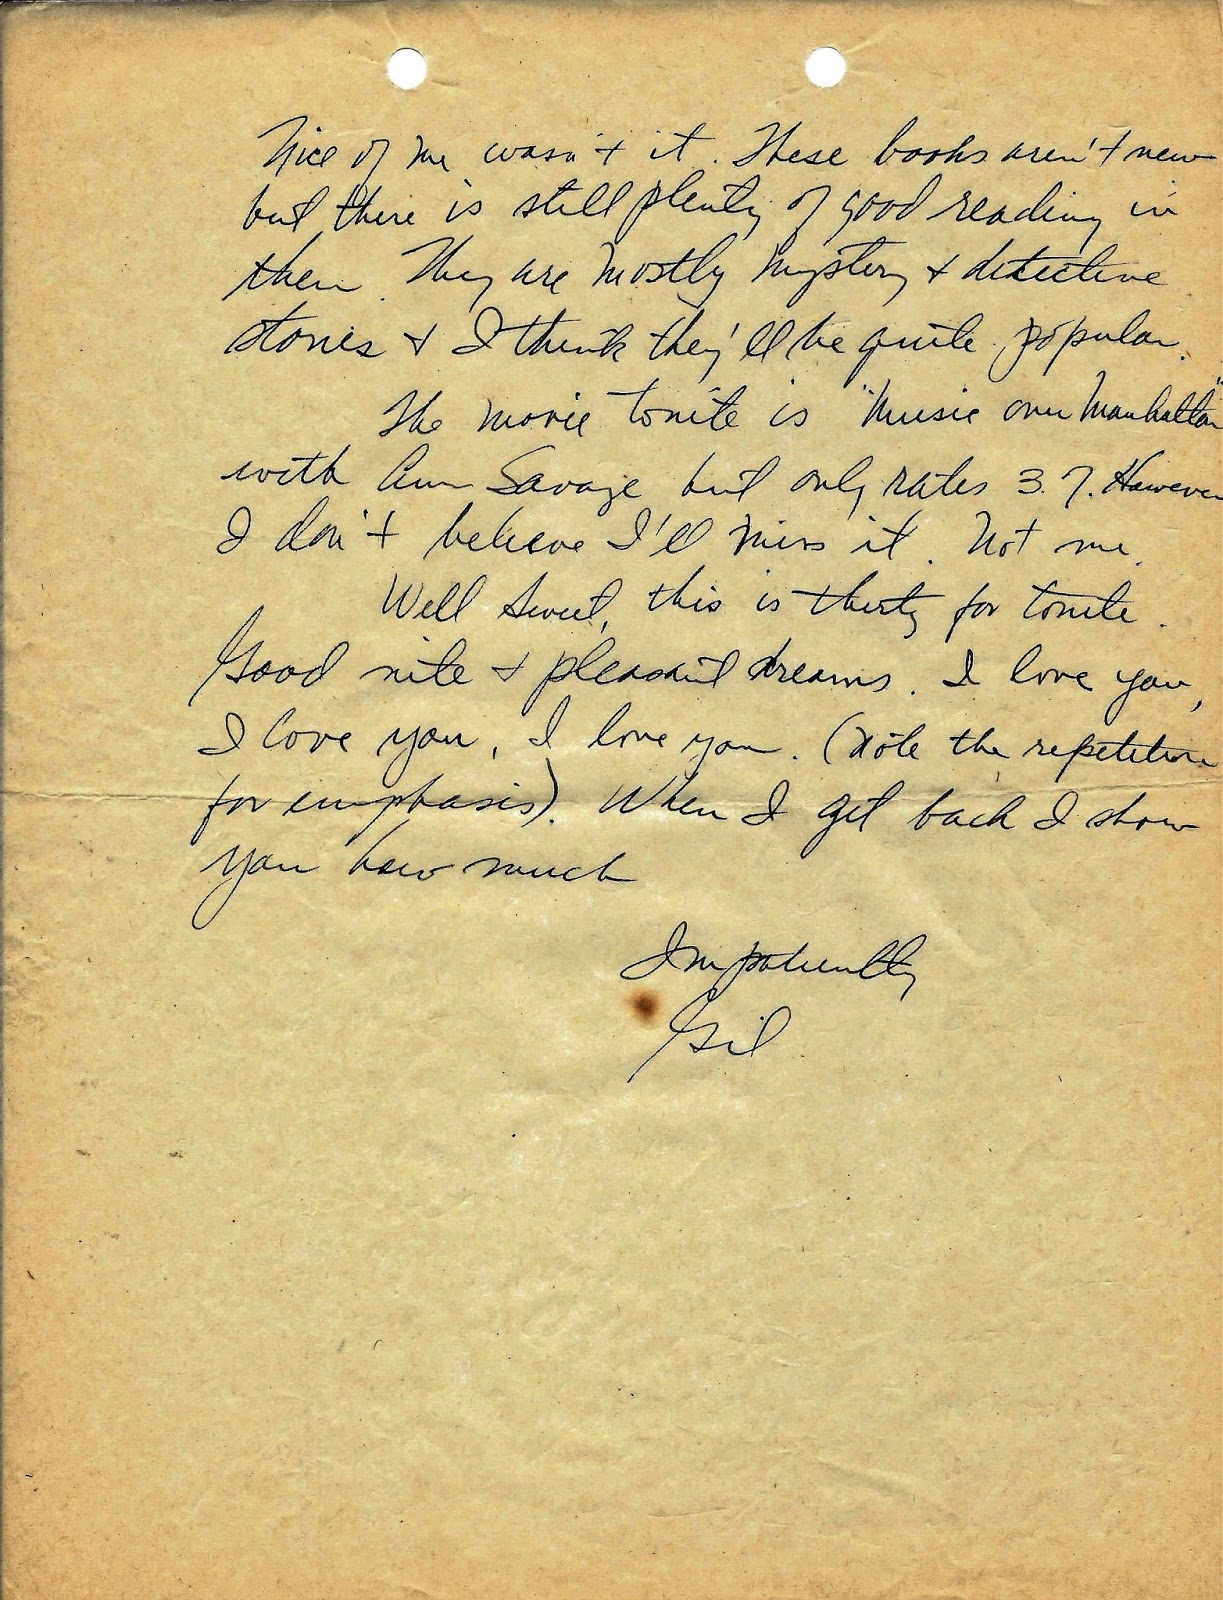 Nice of me wasn't it. These books aren't new
but there is still plenty of good reading in
them. They are mostly mystery + detective
stories + I think they'll be quite popular.
The movie tonite is "Music over Manhattan"
with Ann Savage but only rates 3.7. However
I don't believe I'll miss it. Not me.
Well Sweet, this is thirty for tonite.
Good nite + pleasant dreams. I love you,
I love you, I love you. (Note the repetition
for emphasis). When I get back I show
you how much
Impatiently
Gil